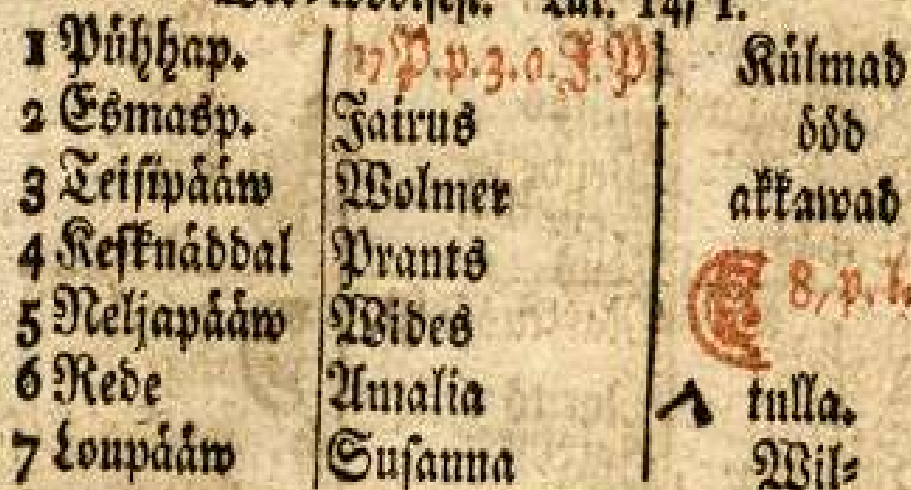 Luk. 14, 1.
1 Pühhap. 17 P. p. 3. o. J. P Külmad
2 Esmasp. Jairus ööd
3 Teisipääw Wolmer akkawad
4 Kesknäddal Prants
5 Neljapääw Wides 8, p. l.
6 Rede Amalia tulla.
7 Loupääw Susanna Wil⸗